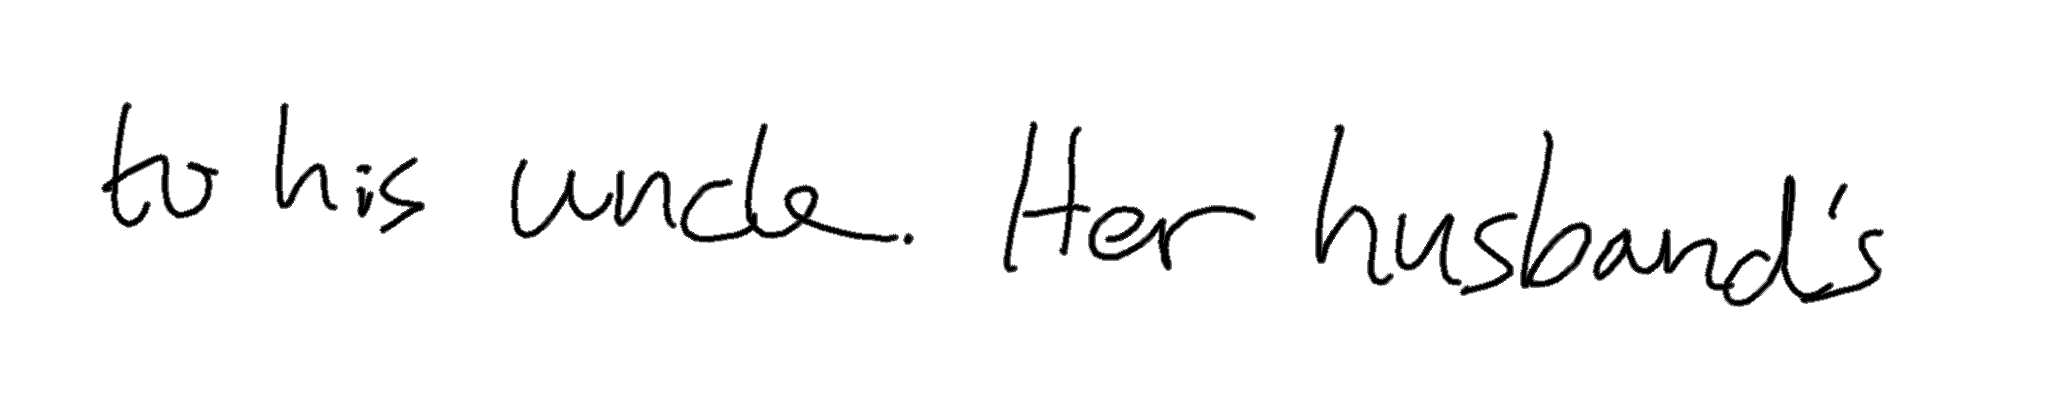 to his uncle. Her husband's